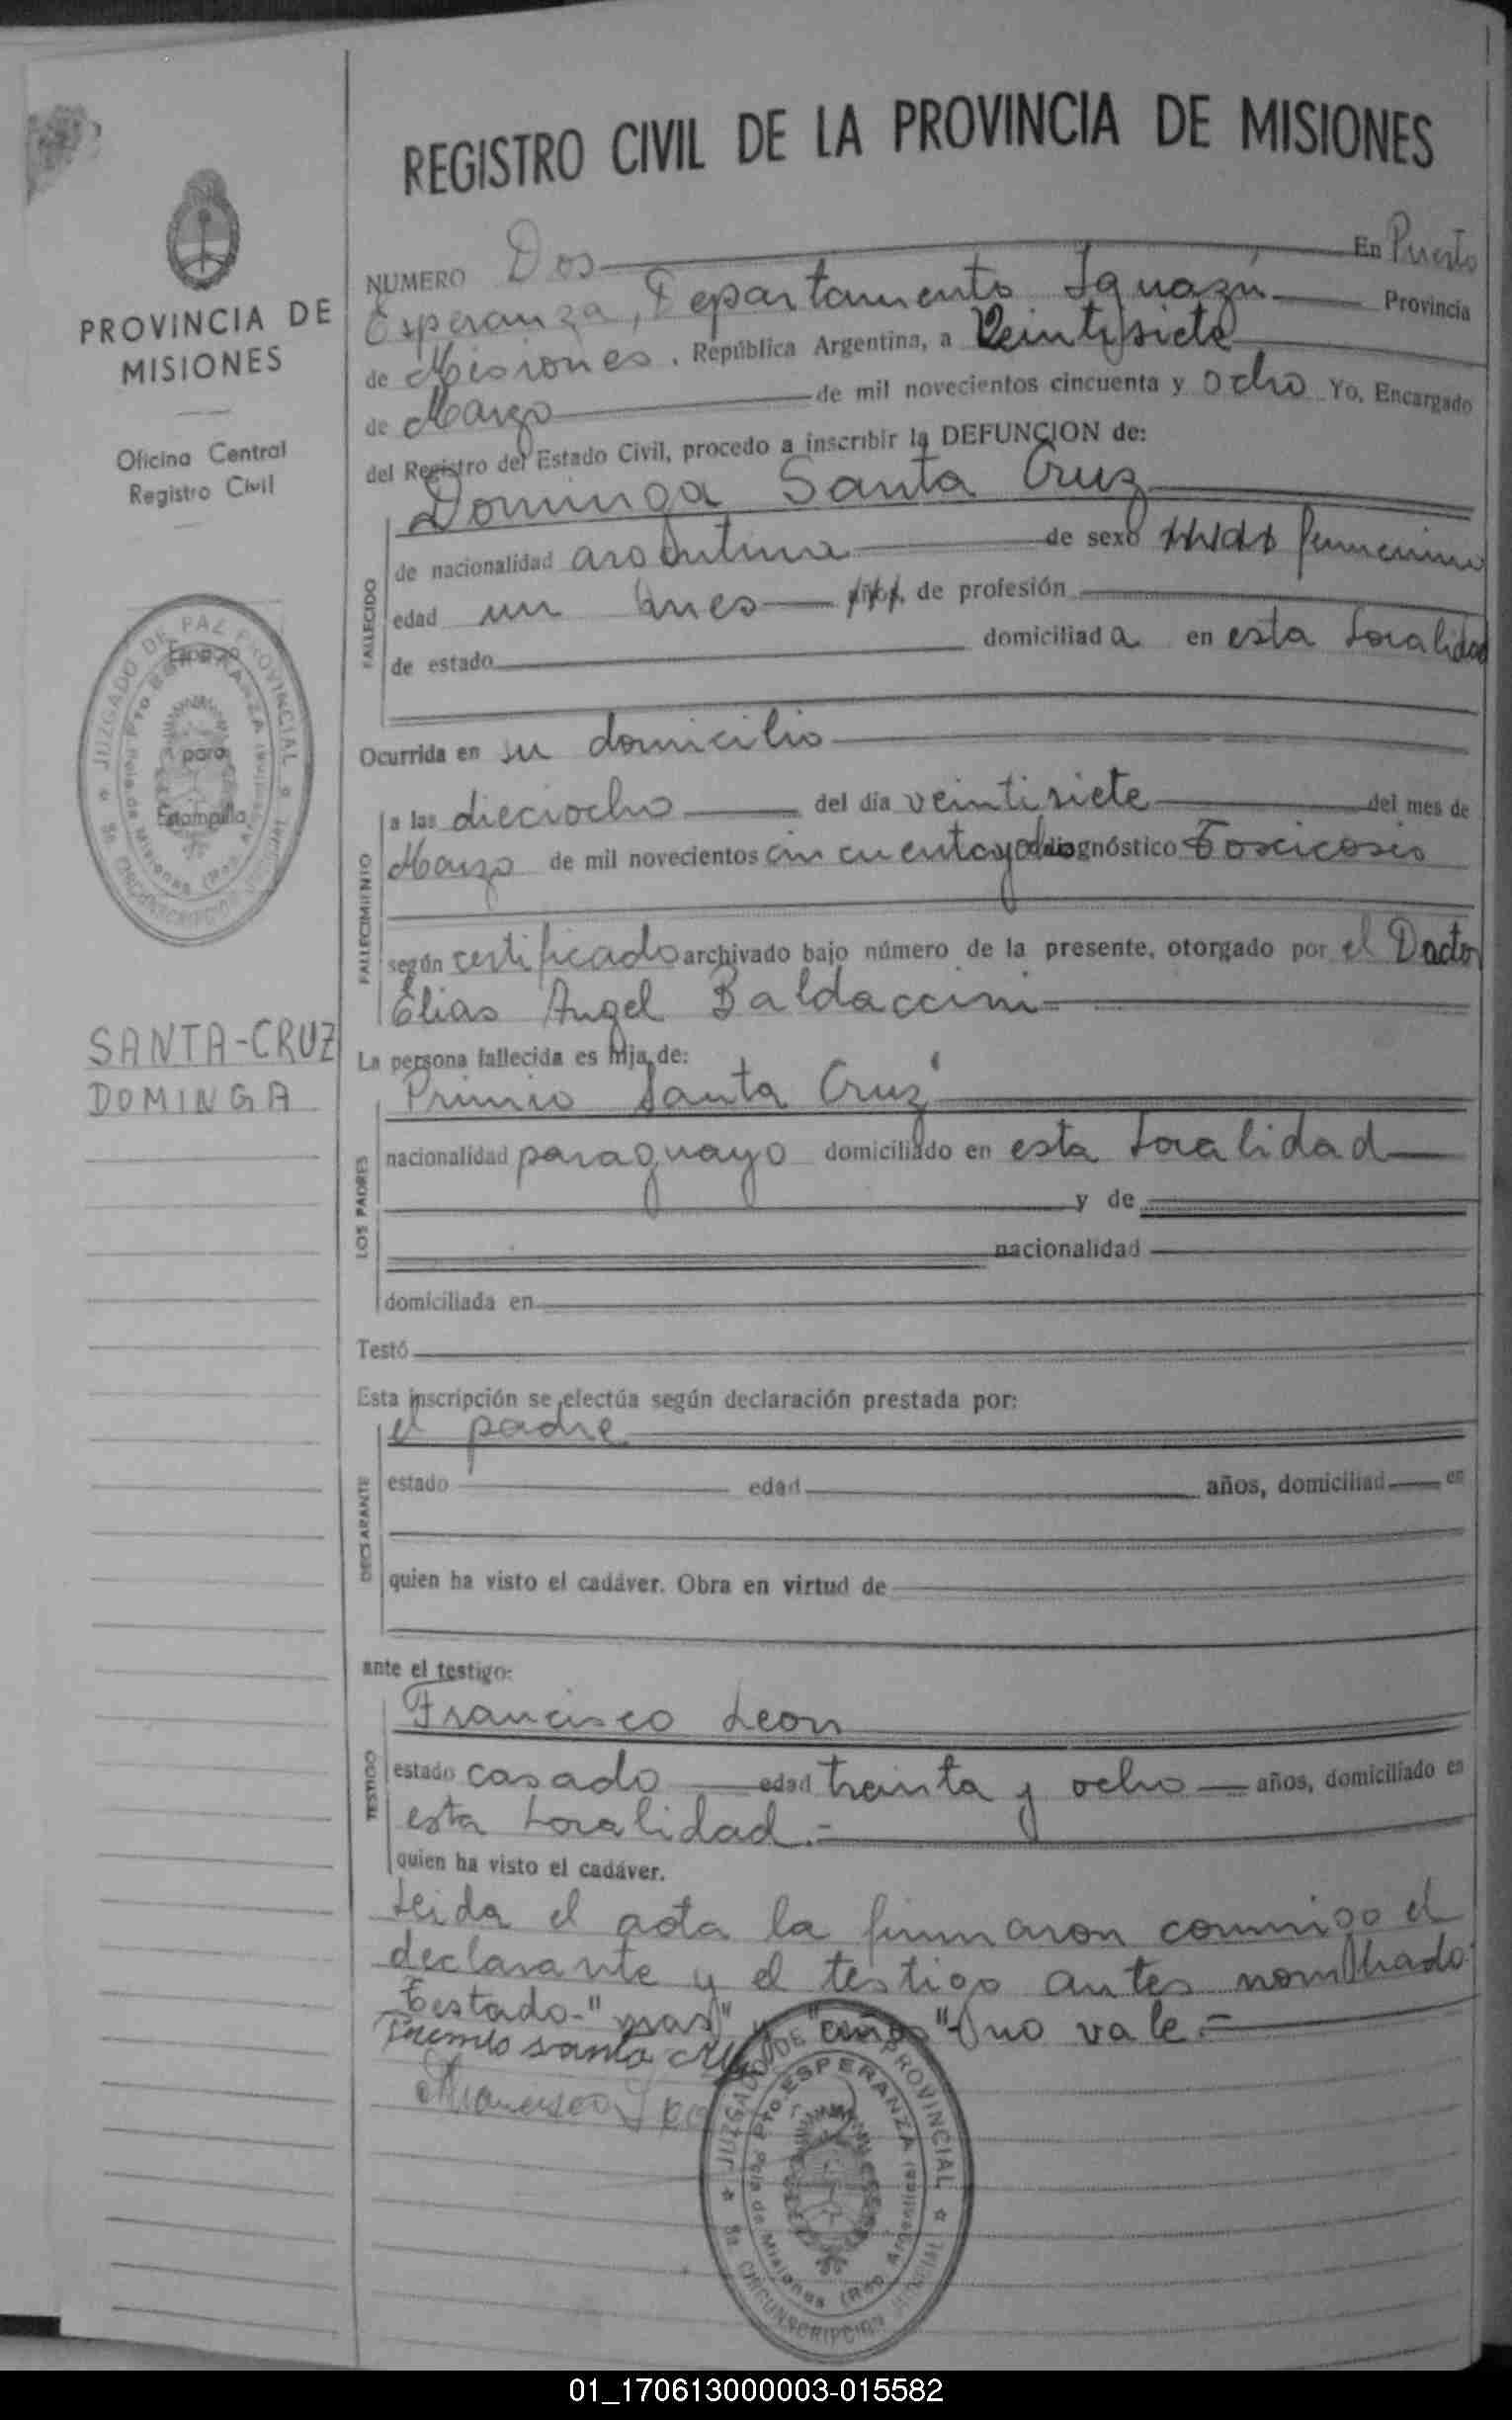 REGISTRO CIVIL DE LA PROVINCIA DE MISIONES
PROVINCIA DE
MISIONES
Oficina Central
Registro Civil
JUZGADO DE PAZ PROVINCIAL
Pto ESPERANZA
Pcia de Misiones (Rep. Argentina)
8a CIRCUNSCRIPCION JUDICIAL
Espacio
para
Estampilla
SANTA-CRUZ
DOMINGA
NUMERO Dos En Puerto
Esperanza, Departamento Iguazú Provincia
de Misiones, República Argentina, a Veintisiete
de Marzo de mil novecientos cincuenta y ocho Yo, Encargado
del Registro del Estado Civil, procedo a inscribir la DEFUNCION de:
Dominga Santa Cruz
FALLECIDO
de nacionalidad argentina de sexo femenino
edad un mes años, de profesión
de estado domiciliada en esta Localidad
Ocurrida en su domicilio
FALLECIMIENTO
a las dieciocho del día veintisiete del mes de
Marzo de mil novecientos cincuenta y ocho diagnóstico Toxicosis
según certificado archivado bajo número de la presente, otorgado por el Doctor
Elias Angel Baldaccini
La persona fallecida es hija de:
LOS PADRES
Primio Santa Cruz
nacionalidad paraguayo domiciliado en esta Localidad
y de
nacionalidad
domiciliada en
Testó
Esta inscripción se efectúa según declaración prestada por:
DECLARANTE
el padre
estado edad años, domiciliad en
quien ha visto el cadáver. Obra en virtud de
ante el testigo:
TESTIGO
Francisco Leon
estado casado edad treinta y ocho años, domiciliado en
esta Localidad.-
quien ha visto el cadáver.
Leida el acta la firmaron conmigo el
declarante y el testigo antes nombrado.
Testado-" " y "años"- no vale.=
santa cruz
Francisco
JUZGADO DE PROVINCIAL
Pto. ESPERANZA
Pcia de Misiones (Rep Argentina)
8a CIRCUNSCRIPCION JUDICIAL
01_170613000003-015582